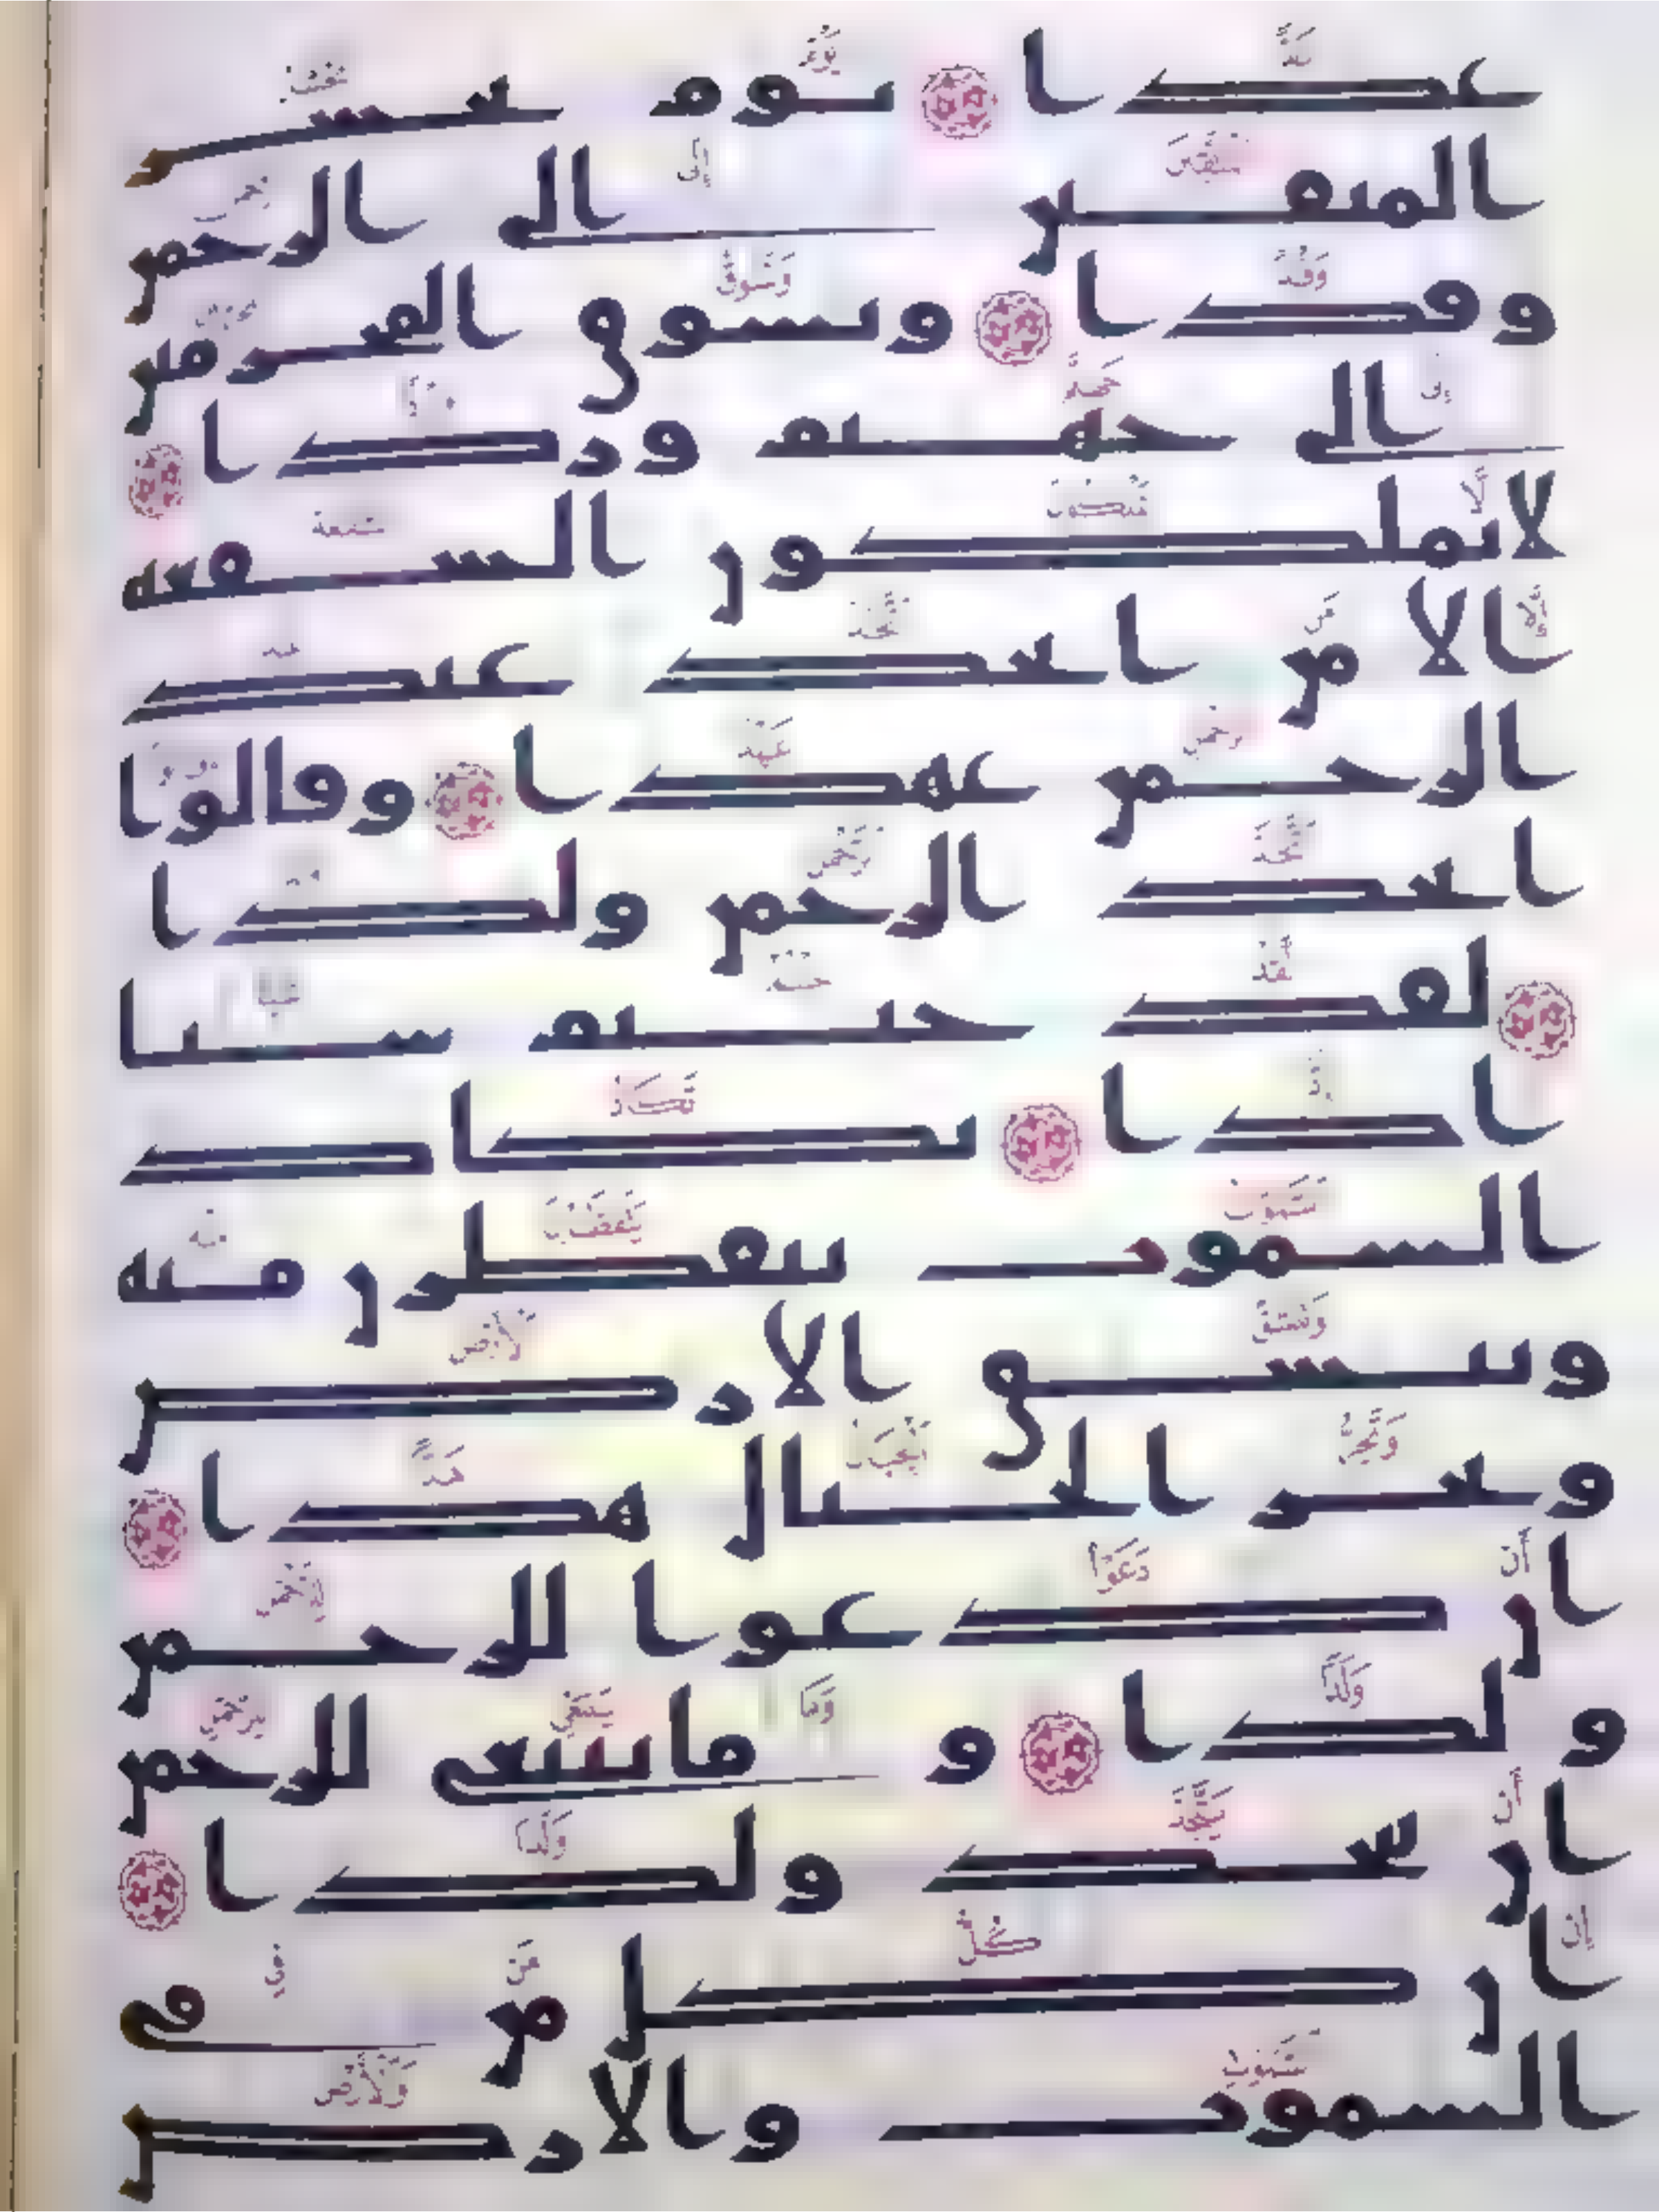 عدا يوم نحشر
المتقين الى الرحمن
وفدا ونسوق المجرمين
الى جهنم وردا
لا يملكون الشفعة
الا من اتخذ عند
الرحمن عهدا وقالوا
اتخذ الرحمن ولدا
لقد جئتم شيا
ادا تكاد
السموت يتفطرن منه
وتنشق الارض
وتخر الجبال هدا
ان دعوا للرحمن
ولدا وما ينبغى للرحمن
ان يتخذ ولدا
ان كل من فى
السموت والارض